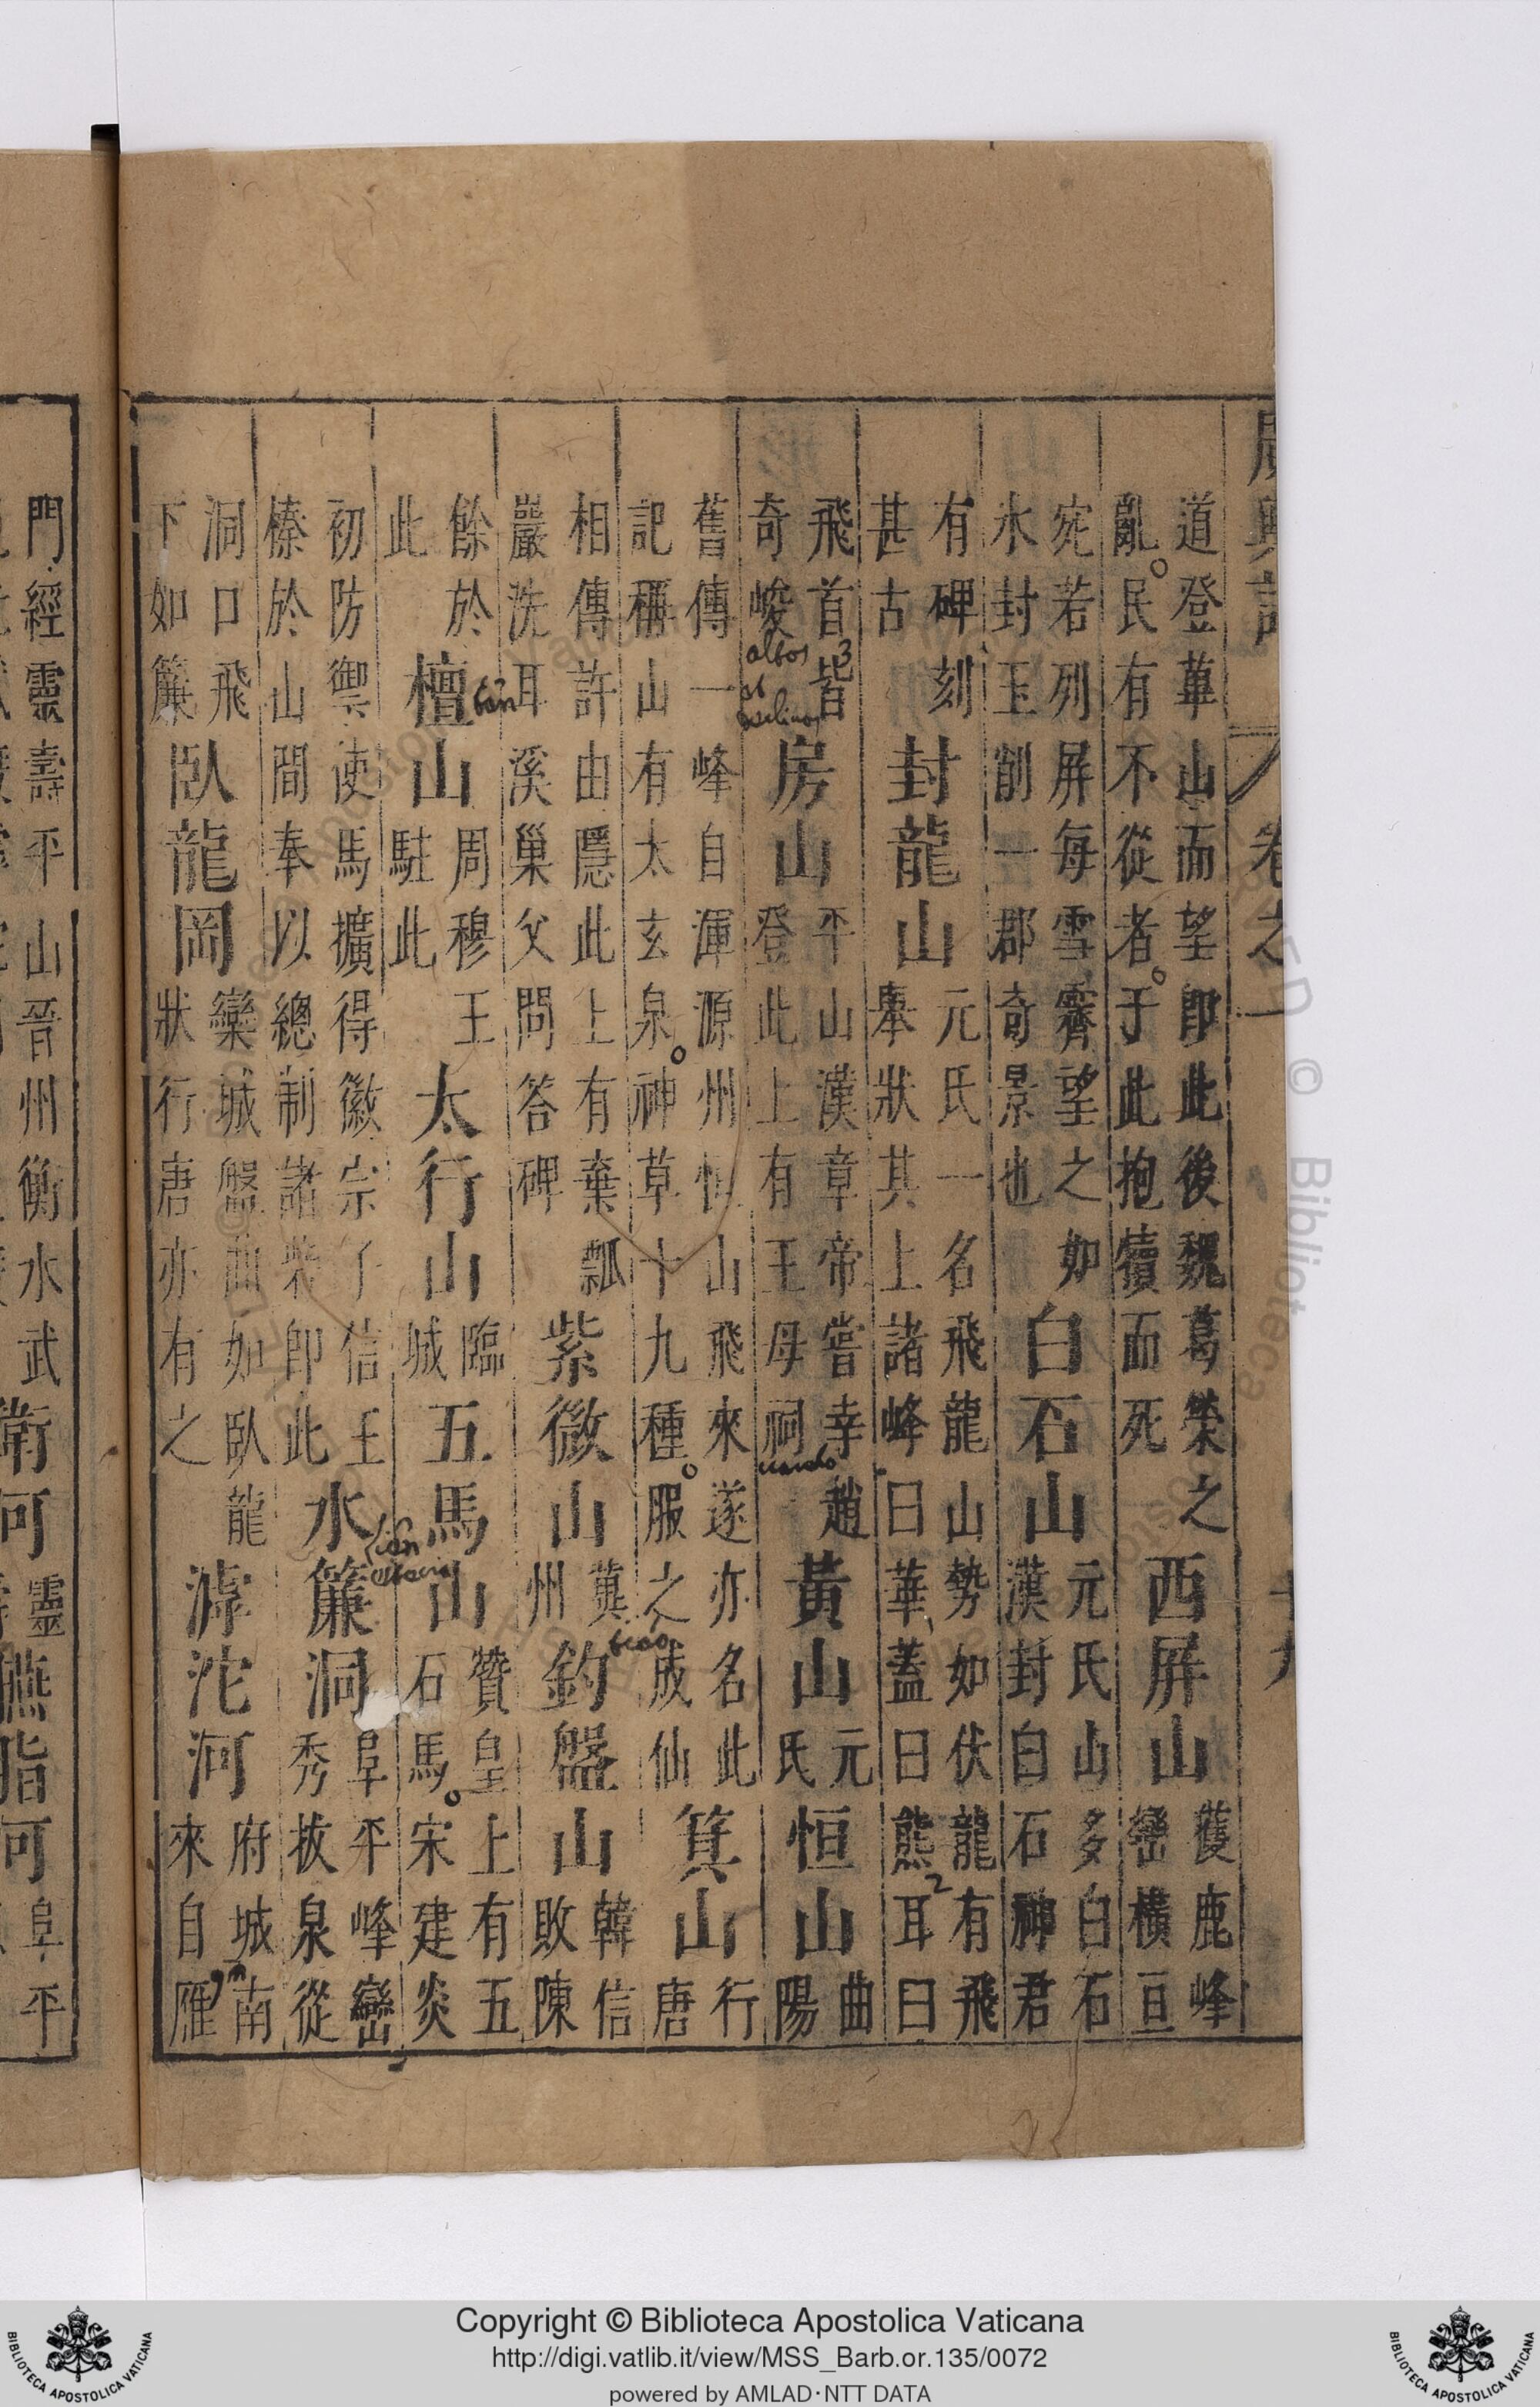 廣輿記 卷之一
道登華山而望即此後魏葛榮之亂民有不從者于此抱犢而死西屏山獲鹿峰巒橫亘
宛若列屏每雪霽望之如氷封玉削一郡奇景也白石山元氏山多白石漢封白石神君
有碑刻甚古封龍山元氏一名飛龍山勢如伏龍有飛舉狀其上諸峰曰華蓋曰熊耳曰
2
飛首皆奇峻房山平山漢章帝嘗幸趙登此上有王母祠黃山元氏恒山曲陽
3
albos
舊傳一峰自渾源州恒山飛來遂亦名此記稱山有太玄泉神草十九種服之成仙箕山行唐
相傳許由隱此上有棄瓢巖洗耳溪巢父問答碑紫微山冀州釣盤山韓信敗陳
餘於此檀山周穆王駐此太行山臨城五馬山贊皇上有五石馬宋建炎
初防禦使馬擴得徽宗子信王榛於山間奉以總制諸砦即此水簾洞阜平峰巒秀拔泉從
洞口飛下如簾臥龍岡欒城盤曲如臥龍狀行唐亦有之滹沱河府城南來自雁
門經靈壽平山晉州衡水武衛河靈臙脂河阜平
Copyright © Biblioteca Apostolica Vaticana
http://digi.vatlib.it/view/MSS_Barb.or.135/0072
powered by AMLAD·NTT DATA
BIBLIOTECA APOSTOLICA VATICANA
BIBLIOTECA APOSTOLICA VATICANA